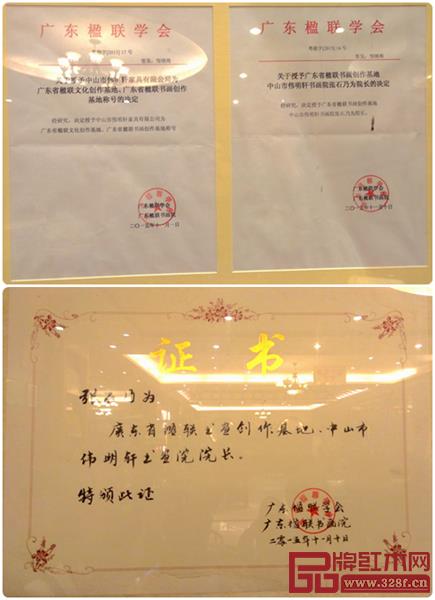 广东楹联学会
签发：邹继海
关于授予中山市伟明轩家具有限公司为
广东省楹联文化创作基地、广东省楹联书画创作
基地称号的决定
经研究，决定授予中山市伟明轩家具有限公司为
广东省楹联文化创作基地、广东省楹联书画创作基地称号
广东楹联学会
广东楹联书画院
二〇一五年十一月一日
广东楹联学会
签发：邹继海
关于授予广东省楹联书画创作基地
中山市伟明轩书画院张石乃为院长的决定
经研究，决定授予广东省楹联书画创作基地
中山市伟明轩书画院张石乃为院长。
广东楹联学会
广东楹联书画院
二〇一五年十一月十日
证书
张石乃为
广东省楹联书画创作基地、中山市
伟明轩书画院院长。
特颁此证
广东楹联学会
广东楹联书画院
二零一五年十一月十日
品牌红木网
www.328f.cn